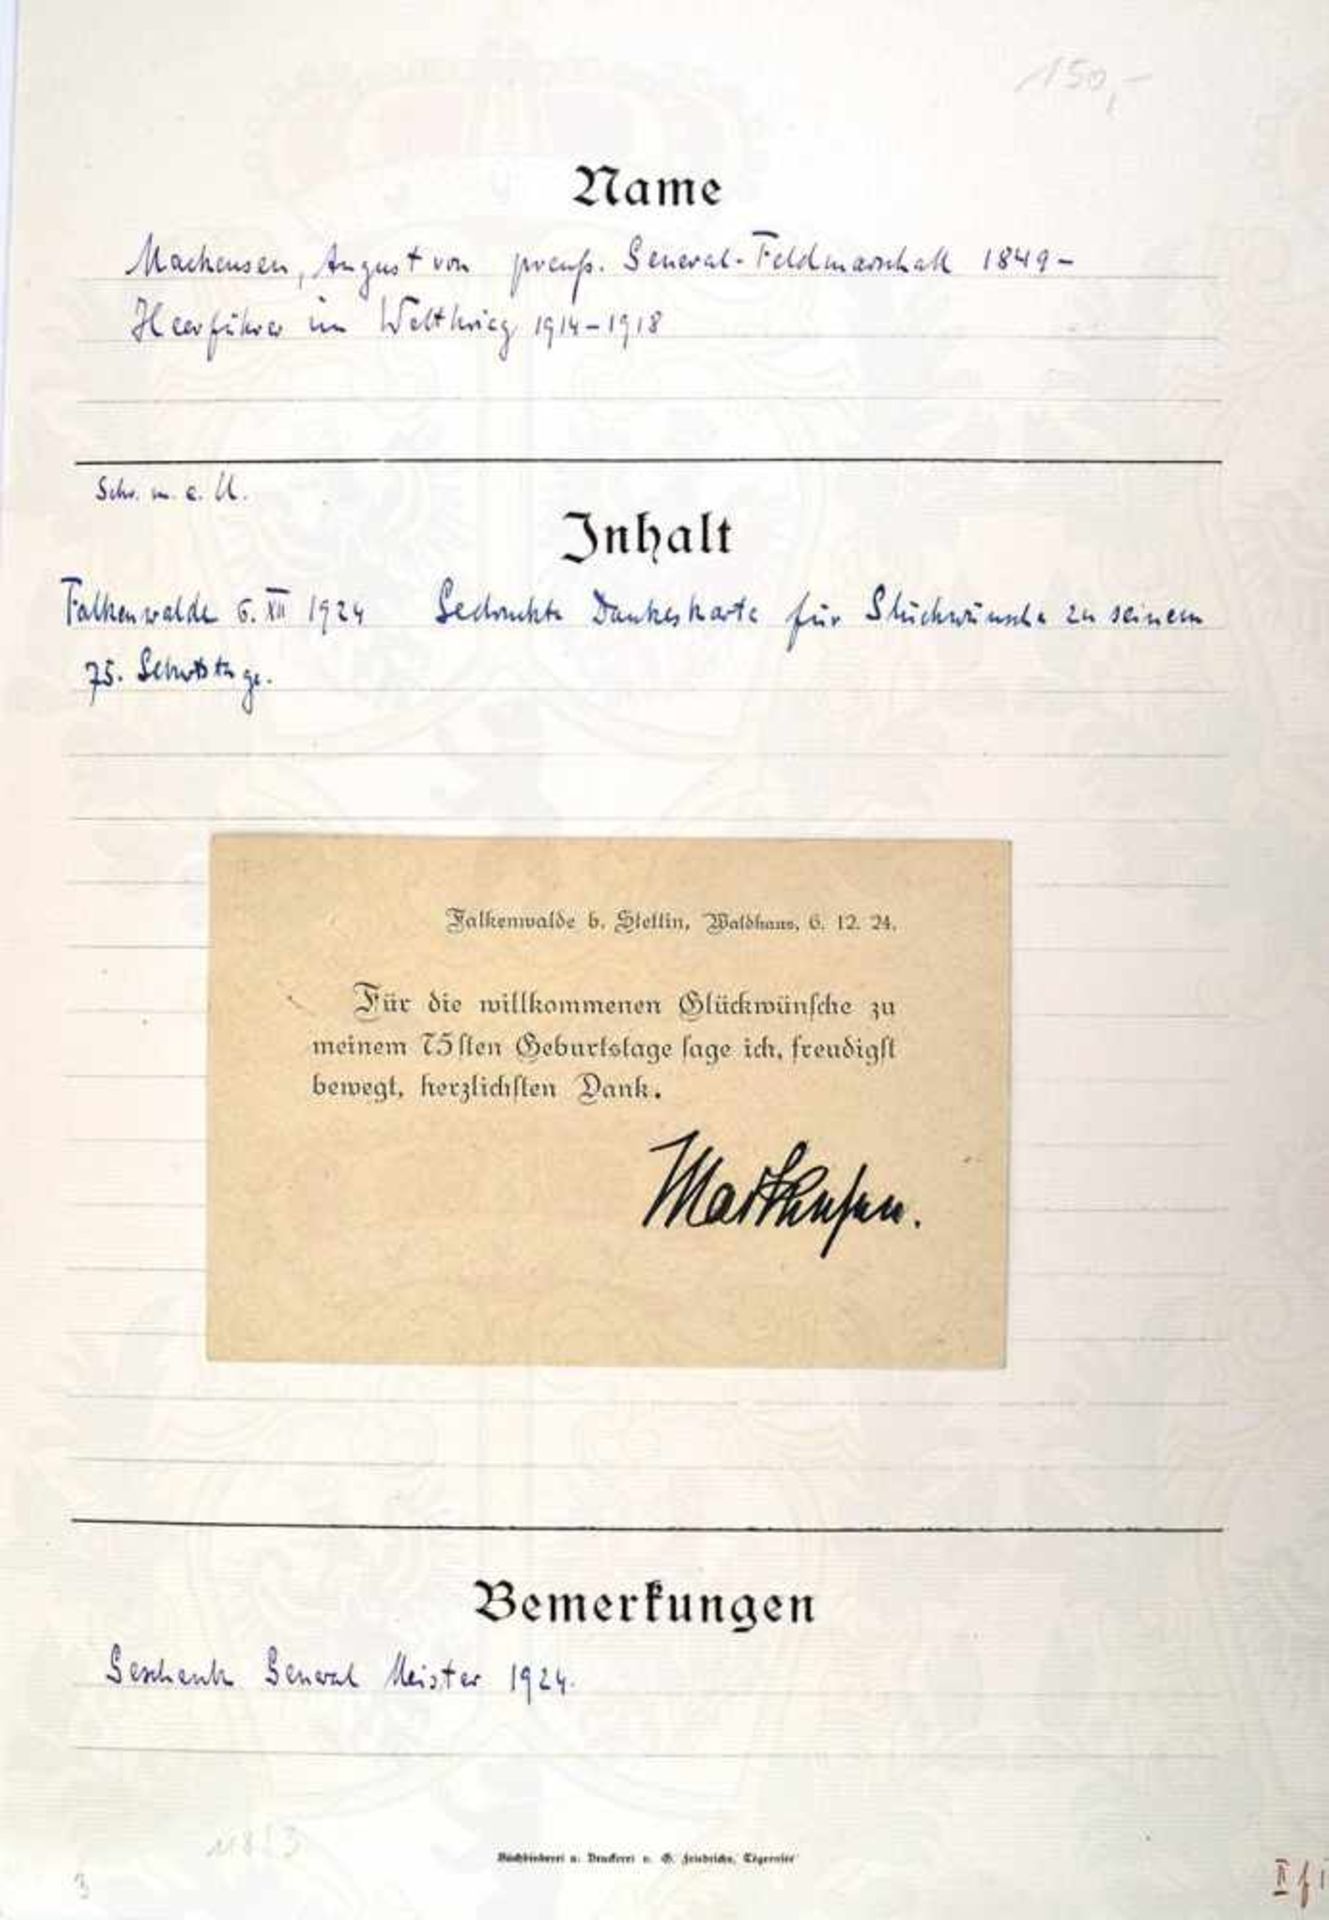 150,-
Name
Mackensen, August von preuß. General-Feldmarschall 1849-
Heerführer im Weltkrieg 1914-1918
Schr. m. e. U.
Inhalt
Falkenwalde 6. XII 1924 Gedruckte Dankeskarte für Glückwünsche zu seinem
75. Geburtstage.
Falkenwalde b. Stettin, Waldhaus, 6. 12. 24.
Für die willkommenen Glückwünſche zu
meinem 75ſten Geburtstage ſage ich, freudigſt
bewegt, herzlichſten Dank.
Mackensen.
Bemerkungen
Geschenk General Meister 1924.
Buchbinderei u. Druckerei v. G. Friedrichs, Tegernsee
3
II f